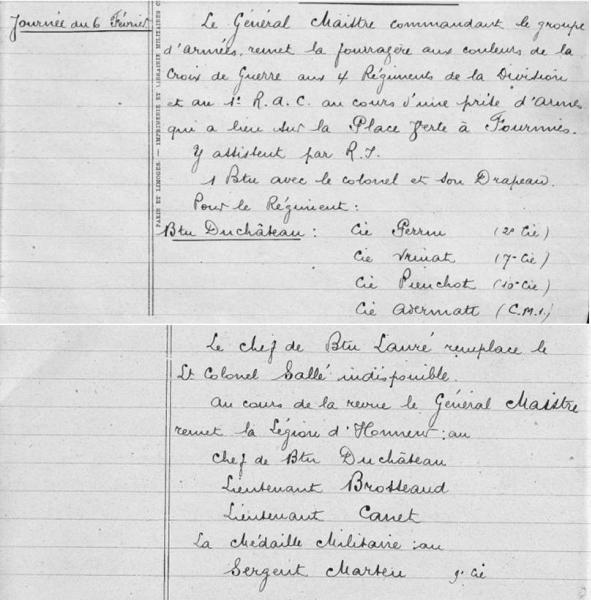 Journée du 6 Février
PARIS ET LIMOGES. — IMPRIMERIE ET LIBRAIRIE MILITAIRES C
Le Général Maistre commandant le groupe
d'armées, remet la fourragère aux couleurs de la
Croix de Guerre aux 4 Régiments de la Division
et au 1er R.a.C. au cours d'une prise d'armes
qui a lieu sur la Place Verte à Fourmies.
Y assistent par R.I.
1 Btn avec le colonel et son Drapeau.
Pour le Régiment :
Btn Duchâteau : Cie Perrin (2e Cie)
Cie Vrinat (7e Cie)
Cie Pienchot (10e Cie)
Cie Adermatt (C.M.1.)
Le chef de Btn Lauré remplace le
Lt Colonel Sallé indisponible.
Au cours de la revue le Général Maistre
remet la Légion d'Honneur : au
Chef de Btn Duchâteau
Lieutenant Brosseaud
Lieutenant Canet
La Médaille Militaire : au
Sergent Marteu 9e Cie